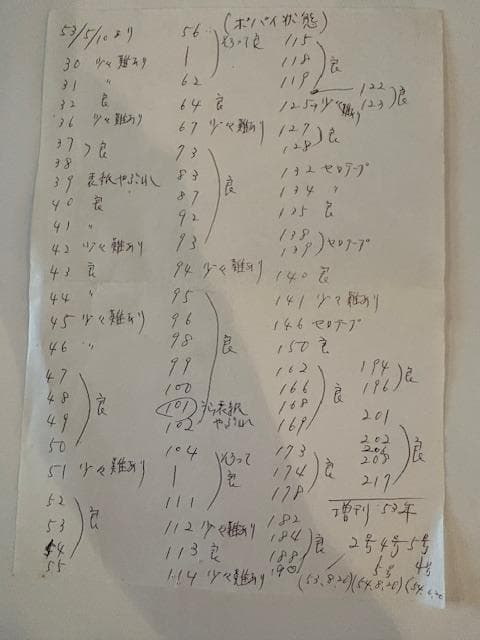 (ポパイ状態)
53/5/10より
30 少々難あり
31 〃
32 良
36 少々難あり
37
38 ) 良
39 表紙やぶれ
40 良
41 〃
42 少々難あり
43 良
44 〃
45 少々難あり
46 〃
47
48
49 ) 良
50
51 少々難あり
52
53 ) 良
54
55
56
| そろって良
62
64 良
67 少々難あり
73
83
87 ) 良
92
93
94 少々難あり
95
96
98 ) 良
99
100
101 うら表紙やぶれ
102
104
| そろって良
111
112 少々難あり
113 良
114 少々難あり
115
118 ) 良
119
122
123 ) 良
125 少々難あり
127
128 ) 良
132 セロテープ
134 〃
135 良
138
139 ) セロテープ
140 良
141 少々難あり
146 セロテープ
150 良
162
166 ) 良
168
169
173
174 ) 良
178
182
184 ) 良
188
190
194
196 ) 良
201
202
208 ) 良
217
増刊 53年
2号 4号 5号
5号 4号
(53.8.20) (54.8.20)